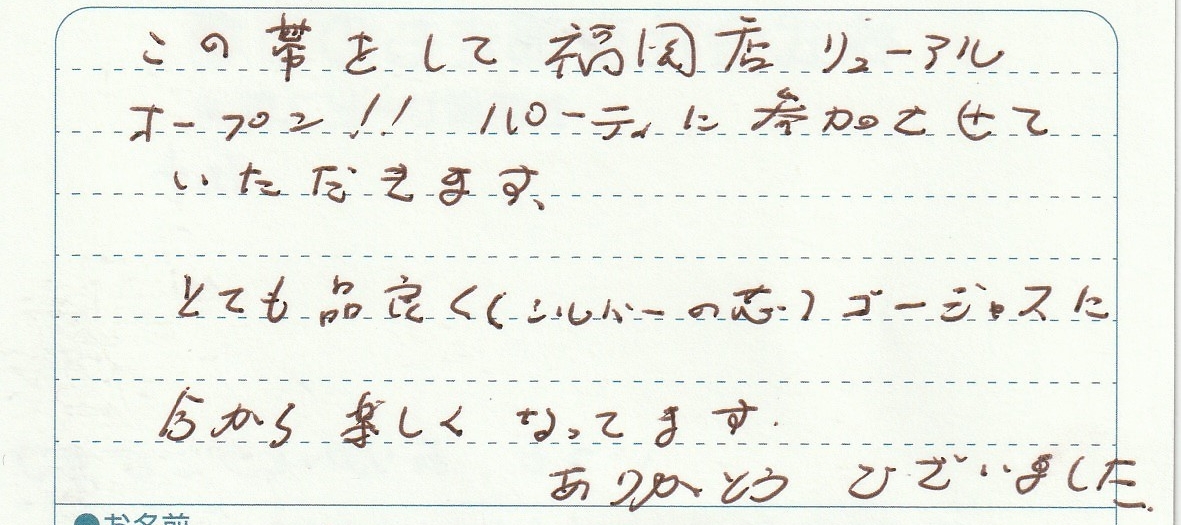 この帯をして 福岡店 リューアル
オープン!! パーティに参加させて
いただきます、
とても品良く(シルバーの芯)ゴージャスに
今から楽しくなってます.
ありがとう ございました.
●お名前